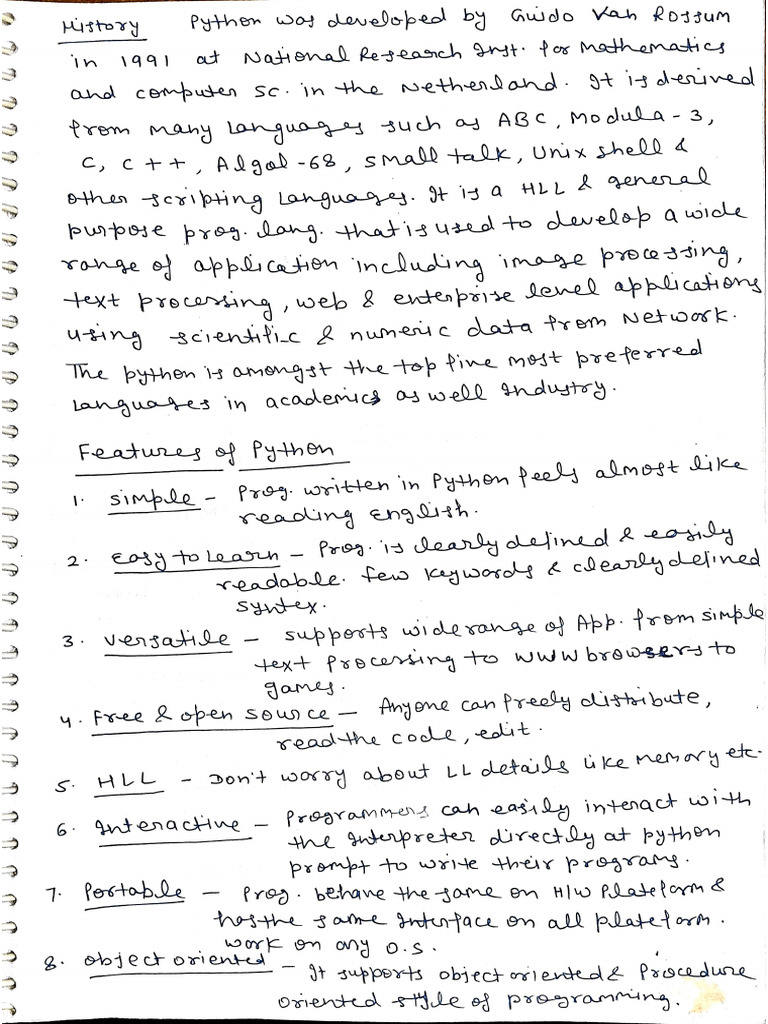 History Python was developed by Guido Van Rossum
in 1991 at National Research Inst. for Mathematics
and computer sc. in the Netherland. It is derived
from many languages such as ABC, Modula-3,
C, C++, Algol-68, small talk, Unix shell &
other scripting languages. It is a HLL & general
purpose prog. lang. that is used to develop a wide
range of application including image processing,
text processing, web & enterprise level applications
using scientific & numeric data from Network.
The python is amongst the top five most preferred
languages in academics as well Industry.
Features of Python
1. simple - Prog. written in Python feels almost like
reading English.
2. Easy to Learn - Prog. is clearly defined & easily
readable. few keywords & clearly defined
syntex.
3. versatile - supports wide range of App. from simple
text processing to www browsers to
games.
4. Free & open source - Anyone can freely distribute,
read the code, edit.
5. HLL - Don't worry about LL details like memory etc.
6. Interactive - Programmers can easily interact with
the Interpreter directly at python
prompt to write their programs.
7. Portable - Prog. behave the same on H/W Plateform &
has the same Interface on all plateform.
work on any O.S.
8. object oriented - It supports object oriented & Procedure
oriented style of programming.